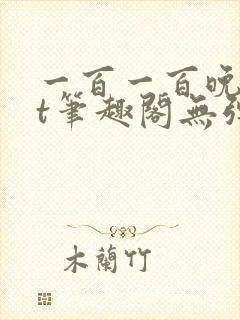 一百一百晚
t筆趣閣無
木蘭竹